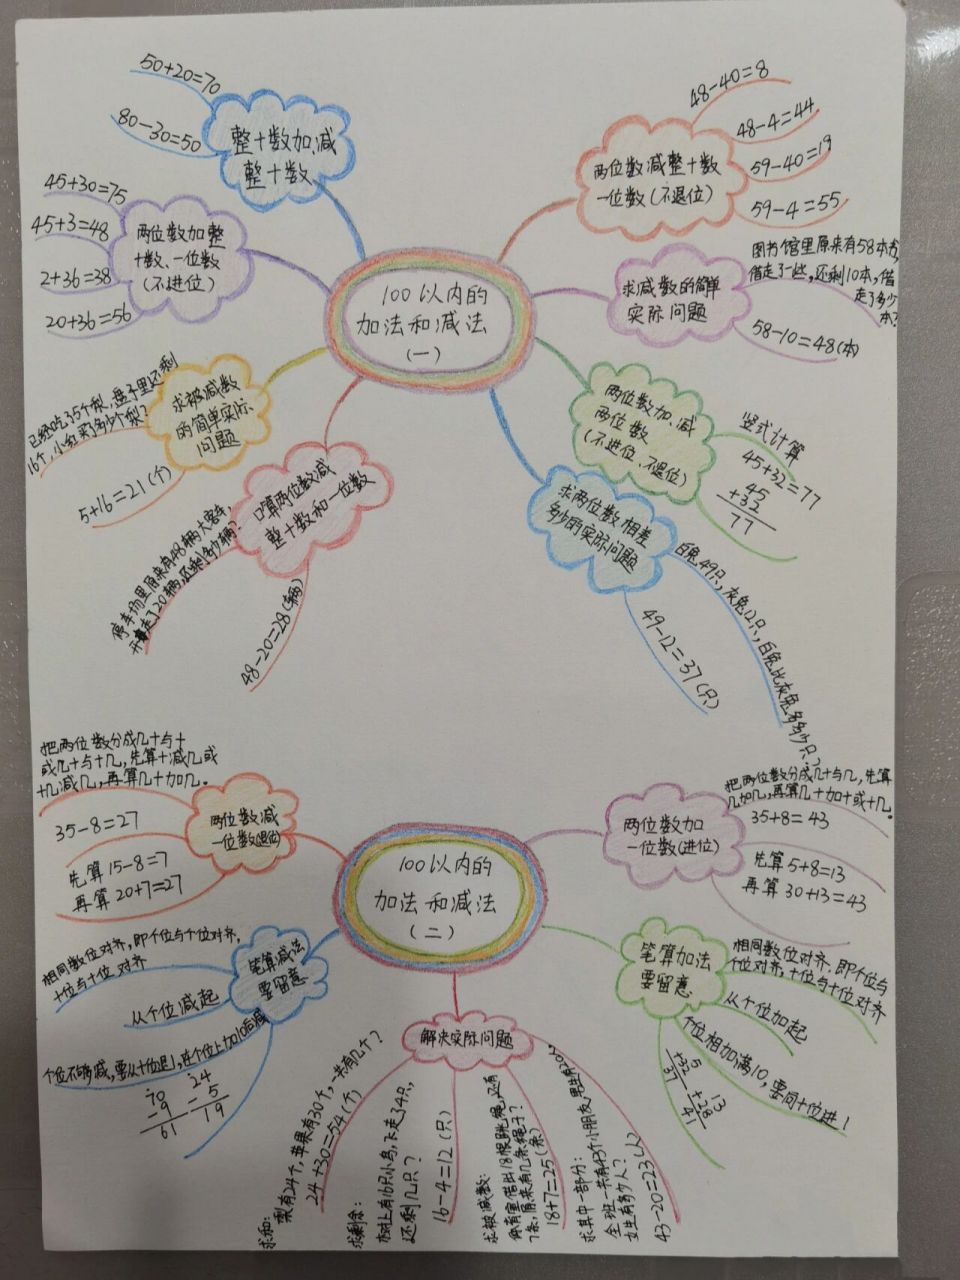 100以内的
加法和减法
(一)
整十数加、减
整十数
50+20=70
80-30=50
两位数加整
十数、一位数
(不进位)
45+30=75
45+3=48
2+36=38
20+36=56
求被减数
的简单实际
问题
已经吃了5个梨,盘子里还剩
16个,小红买了多少个梨?
5+16=21(个)
口算两位数减
整十数和一位数
停车场里原来有48辆大客车,
开走了20辆,还剩多少辆?
48-20=28(辆)
两位数减整十数
一位数(不退位)
48-40=8
48-4=44
59-40=19
59-4=55
求减数的简单
实际问题
图书馆里原来有58本书,
借走了一些,还剩10本,借
走了多少
本?
58-10=48(本)
两位数加、减
两位数
(不进位、不退位)
竖式计算
45+32=77
45
+32
77
求两位数相差
多少的实际问题
白兔49只,灰兔12只,白兔比灰兔多多少只?
49-12=37(只)
100以内的
加法和减法
(二)
两位数减
一位数(退位)
把两位数分成几十与十
或几十与十几,先算十减几或
十几减几,再算几十加几。
35-8=27
先算15-8=7
再算20+7=27
笔算减法
要留意
相同数位对齐,即个位与个位对齐,
十位与十位对齐
从个位减起
个位不够减,要从十位退1,在个位上加10后减
70
-9
61
24
-5
19
解决实际问题
求和:
梨有24个,苹果有30个,一共有几个?
24+30=54(个)
求剩余:
树上有16只小鸟,飞走了4只,
还剩几只?
16-4=12(只)
求被减数:
体育室借出18根跳绳,还有
7条,原来有几条绳子?
18+7=25(条)
求其中一部分:
全班一共有43个小朋友,男生有20人,
女生有多少人?
43-20=23(人)
两位数加
一位数(进位)
把两位数分成几十与几,先算
几加几,再算几十加十或十几。
35+8=43
先算5+8=13
再算30+13=43
笔算加法
要留意
相同数位对齐,即个位与
个位对齐,十位与十位对齐
从个位加起
个位相加满10,要向十位进1
5
+32
37
13
+28
41